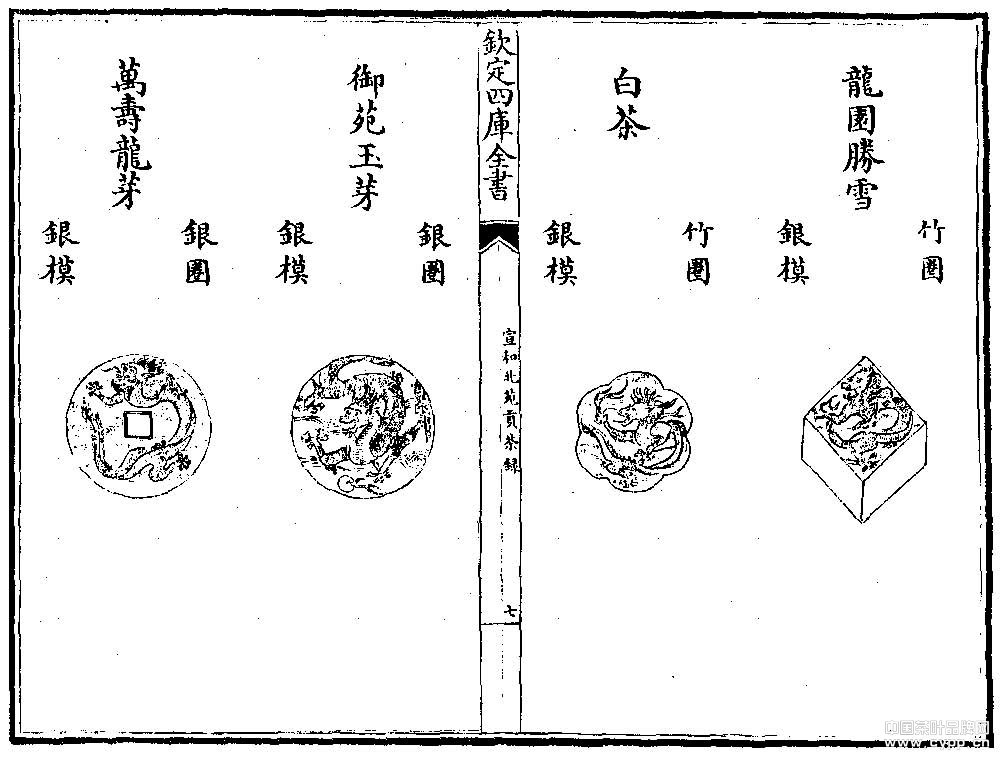 龍園勝雪
竹圈
銀模
白茶
竹圈
銀模
欽定四庫全書
宣和北苑貢茶録
七
御苑玉芽
銀圈
銀模
萬壽龍芽
銀圈
銀模
中国茶叶品牌网
www.cypp.cn